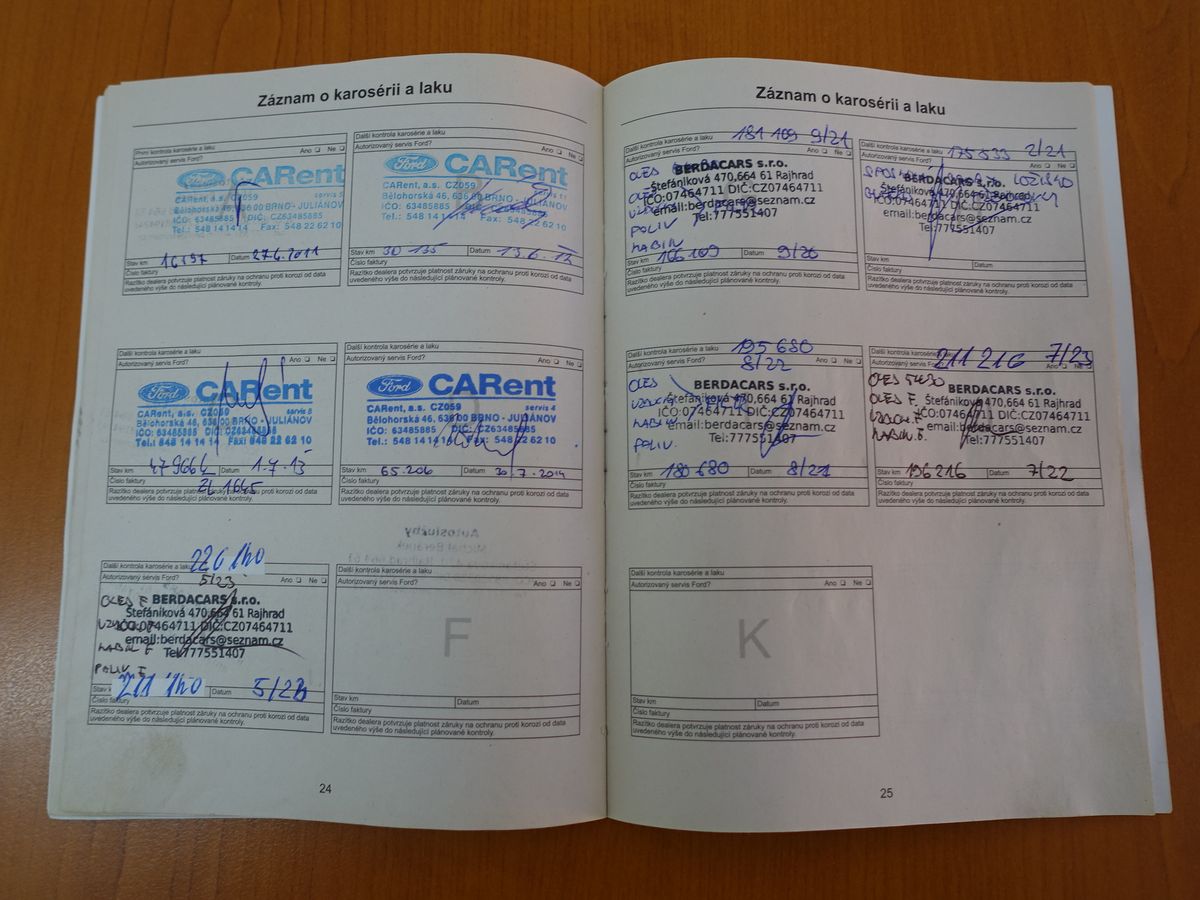 Záznam o karosérii a laku
První kontrola karosérie a laku
Autorizovaný servis Ford? Ano Ne
Ford CARent
servis 5
CARent, a.s. CZ059
Bělohorská 46, 636 00 BRNO - JULIÁNOV
IČO: 63485885 DIČ: CZ63485885
Tel.: 548 14 14 14 Fax: 548 22 62 10
Stav km 16397 Datum 27.6.2011
Číslo faktury
Razítko dealera potvrzuje platnost záruky na ochranu proti korozi od data
uvedeného výše do následující plánované kontroly.
Další kontrola karosérie a laku
Autorizovaný servis Ford? Ano Ne
Ford CARent
CARent, a.s. CZ059
Bělohorská 46, 636 00 BRNO - JULIÁNOV
IČO: 63485885
Tel.: 548 14 14 14 Fax: 548 22 62 10
Stav km 30 135 Datum 13.6.12
Číslo faktury
Razítko dealera potvrzuje platnost záruky na ochranu proti korozi od data
uvedeného výše do následující plánované kontroly.
Další kontrola karosérie a laku
Autorizovaný servis Ford? Ano Ne
Ford CARent
CARent, a.s. CZ059 servis 5
Bělohorská 46, 636 00 BRNO - JULIÁNOV
IČO: 63485885 DIČ: CZ63485885
Tel.: 548 14 14 14 Fax: 548 22 62 10
Stav km Datum 1.7.13
Číslo faktury
Razítko dealera potvrzuje platnost záruky na ochranu proti korozi od data
uvedeného výše do následující plánované kontroly.
Další kontrola karosérie a laku
Autorizovaný servis Ford? Ano Ne
Ford CARent
CARent, a.s. CZ059 servis 4
Bělohorská 46, 636 00 BRNO - JULIÁNOV
IČO: 63485885 DIČ: CZ63485885
Tel.: 548 14 14 14 Fax: 548 22 62 10
Stav km 65.206 Datum 30.7.2014
Číslo faktury
Razítko dealera potvrzuje platnost záruky na ochranu proti korozi od data
uvedeného výše do následující plánované kontroly.
Další kontrola karosérie a laku 226 140
Autorizovaný servis Ford? 5/23 Ano Ne
OLEJ F. BERDACARS s.r.o.
Štefánikova 470,664 61 Rajhrad
IČO:07464711 DIČ:CZ07464711
KABIN F. email:berdacars@seznam.cz
Tel:777551407
PALIV. F.
Stav km 211 140 Datum
Číslo faktury
Razítko dealera potvrzuje platnost záruky na ochranu proti korozi od data
uvedeného výše do následující plánované kontroly.
Další kontrola karosérie a laku
Autorizovaný servis Ford? Ano Ne
F
Stav km Datum
Číslo faktury
Razítko dealera potvrzuje platnost záruky na ochranu proti korozi od data
uvedeného výše do následující plánované kontroly.
24
Záznam o karosérii a laku
Další kontrola karosérie a laku 181 109 9/21
Autorizovaný servis Ford? Ano Ne
OLEJ BERDACARS s.r.o.
Štefánikova 470,664 61 Rajhrad
IČO:07464711 DIČ:CZ07464711
email:berdacars@seznam.cz
PALIV Tel:777551407
KABIN
Stav km 166 109 Datum 9/20
Číslo faktury
Razítko dealera potvrzuje platnost záruky na ochranu proti korozi od data
uvedeného výše do následující plánované kontroly.
Další kontrola karosérie a laku 175 533 2/21
Autorizovaný servis Ford? Ano Ne
BERDACARS s.r.o. LOŽISKO
Štefánikova 470,664 61 Rajhrad
IČO:07464711 DIČ:CZ07464711
email:berdacars@seznam.cz
Tel:777551407
Stav km Datum
Číslo faktury
Razítko dealera potvrzuje platnost záruky na ochranu proti korozi od data
uvedeného výše do následující plánované kontroly.
Další kontrola karosérie a laku 195 680
Autorizovaný servis Ford? 8/22 Ano Ne
OLEJ BERDACARS s.r.o.
VZDUCH Štefánikova 470,664 61 Rajhrad
IČO:07464711 DIČ:CZ07464711
KABIN email:berdacars@seznam.cz
PALIV. Tel:777551407
Stav km 180 680 Datum 8/21
Číslo faktury
Razítko dealera potvrzuje platnost záruky na ochranu proti korozi od data
uvedeného výše do následující plánované kontroly.
Další kontrola karosérie a laku 211 216 7/23
Autorizovaný servis Ford? Ano Ne
OLEJ 5W30 BERDACARS s.r.o.
OLEJ F. Štefánikova 470,664 61 Rajhrad
VZDUCH. F. IČO:07464711 DIČ:CZ07464711
KABIN F. email:berdacars@seznam.cz
Tel:777551407
Stav km 196 216 Datum 7/22
Číslo faktury
Razítko dealera potvrzuje platnost záruky na ochranu proti korozi od data
uvedeného výše do následující plánované kontroly.
Další kontrola karosérie a laku
Autorizovaný servis Ford? Ano Ne
K
Stav km Datum
Číslo faktury
Razítko dealera potvrzuje platnost záruky na ochranu proti korozi od data
uvedeného výše do následující plánované kontroly.
25